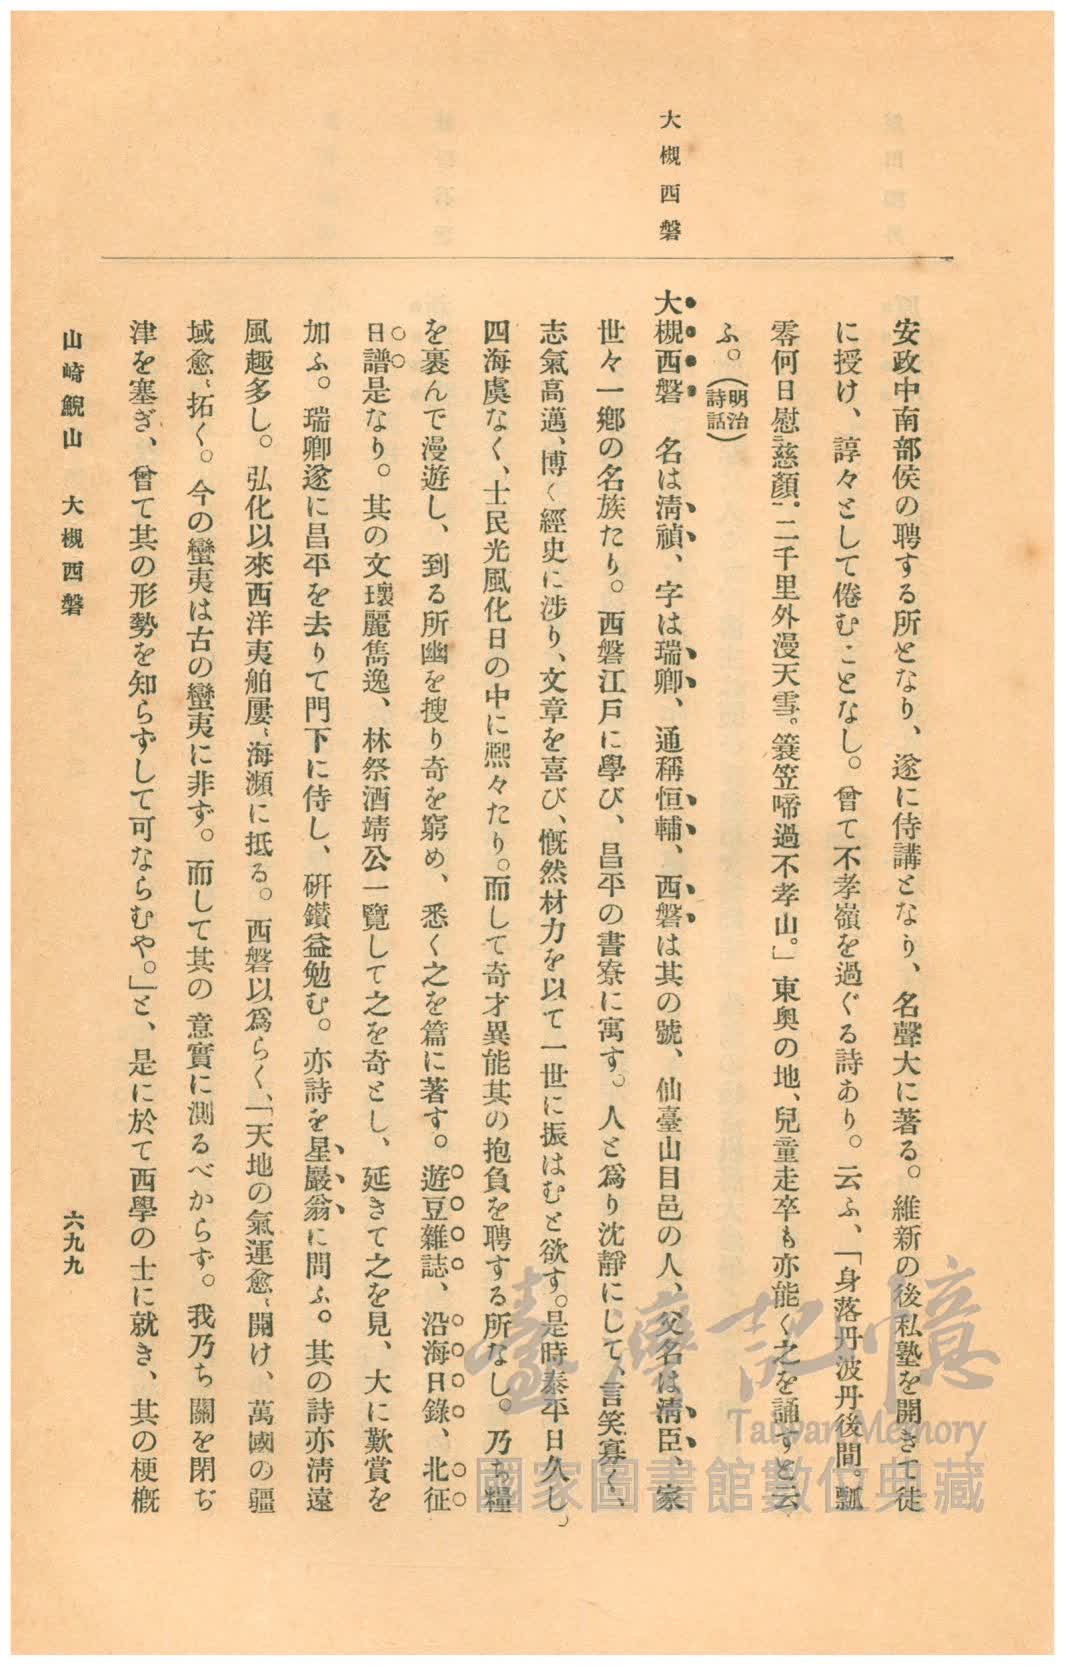 大槻西磐
安政中南部侯の聘する所となり、遂に侍講となり、名聲大に著る。維新の後私塾を開きて徒
に授け、諄々として倦むことなし。曾て不孝嶺を過ぐる詩あり。云ふ、「身落丹波丹後間。瓢
零何日慰慈顏。二千里外漫天雪。簑笠啼過不孝山。」東奥の地、兒童走卒も亦能く之を誦すと云
ふ。(明治詩話)
大槻西磐　名は淸禎、字は瑞卿、通稱恒輔、西磐は其の號、仙臺山目邑の人、父名は淸臣、家
世々一鄕の名族たり。西磐江戸に學び、昌平の書寮に寓す。人と爲り沈靜にして、言笑寡く、
志氣高邁、博く經史に涉り、文章を喜び、慨然材力を以て一世に振はむと欲す。是時泰平日久し、
四海虞なく、士民光風化日の中に熙々たり。而して奇才異能其の抱負を聘する所なし。乃ち糧
を裹んで漫遊し、到る所幽を搜り奇を窮め、悉く之を篇に著す。遊豆雜誌、沿海日錄、北征
日譜是なり。其の文瓌麗雋逸、林祭酒靖公一覽して之を奇とし、延きて之を見、大に歎賞を
加ふ。瑞卿遂に昌平を去りて門下に侍し、硏鑚益勉む。亦詩を星巖翁に問ふ。其の詩亦淸遠
風趣多し。弘化以來西洋夷舶屢〻海瀕に抵る。西磐以爲らく、「天地の氣運愈〻開け、萬國の疆
域愈〻拓く。今の蠻夷は古の蠻夷に非ず。而して其の意實に測るべからず。我乃ち關を閉ぢ
津を塞ぎ、曾て其の形勢を知らずして可ならむや。」と、是に於て西學の士に就き、其の梗槪
山崎鯢山　大槻西磐　六九九
臺灣記憶
Taiwan Memory
國家圖書館數位典藏